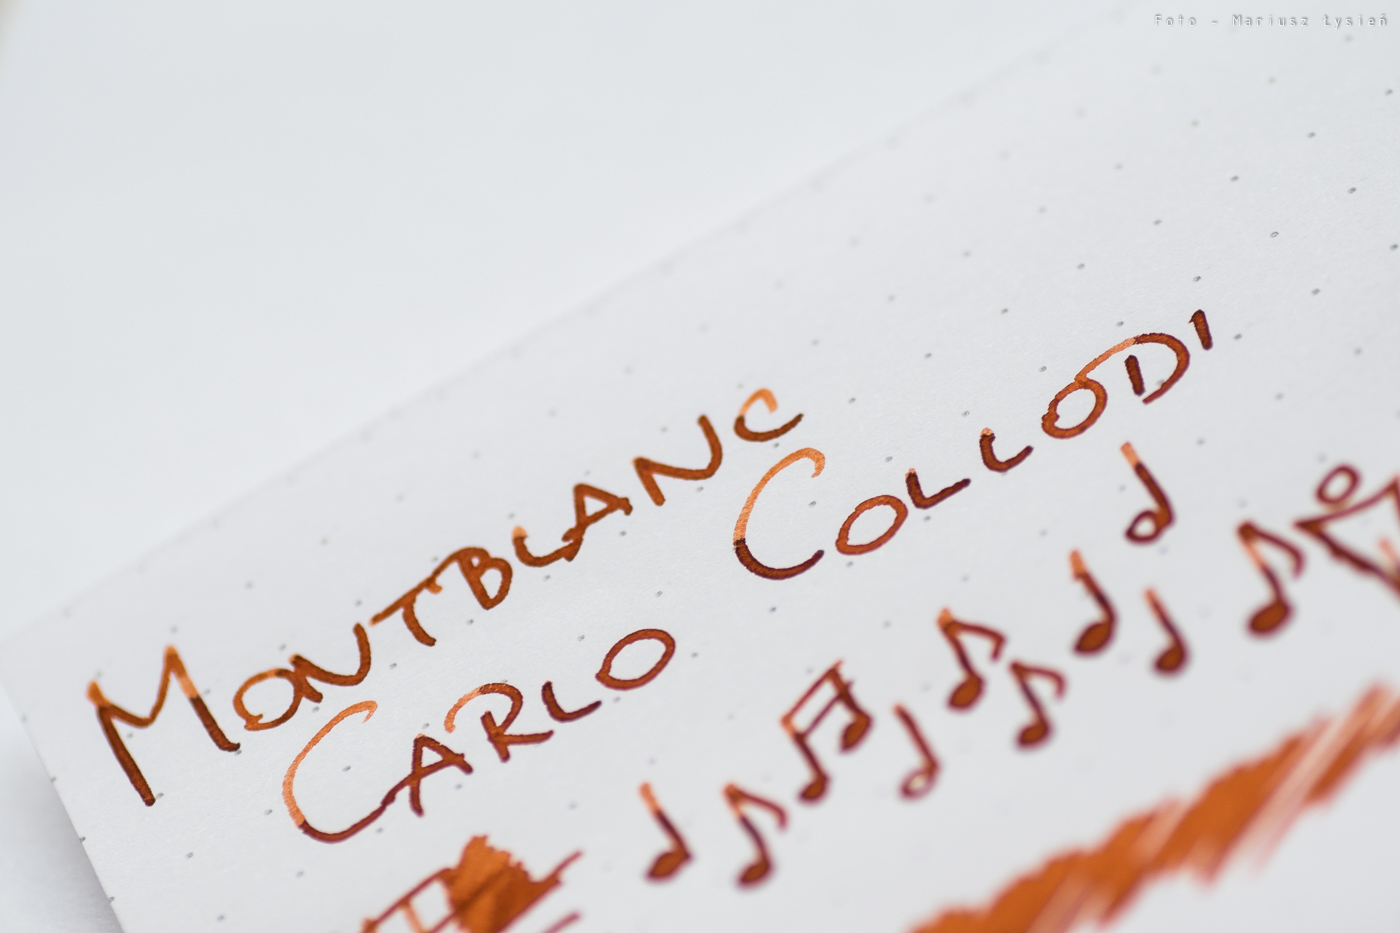 Foto - Mariusz Łysień
MONTBLANC
CARLO COLLODI